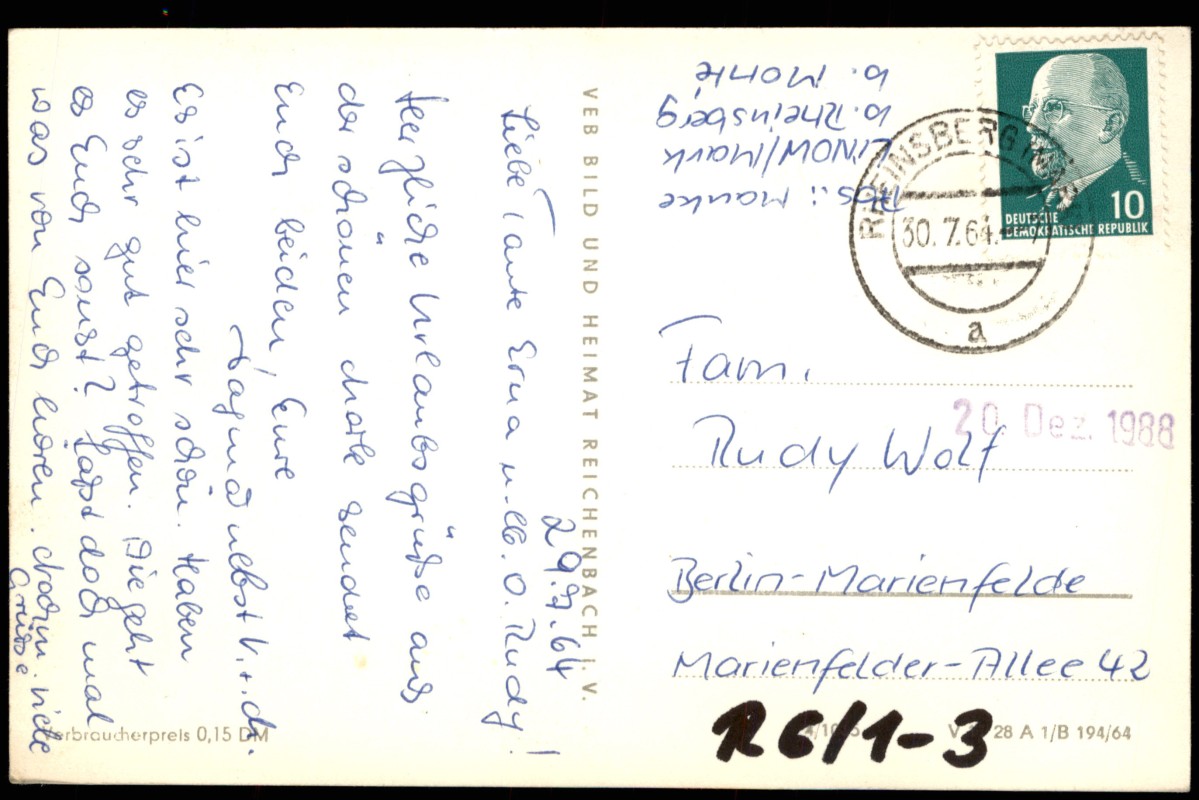 29.7.64
Liebe Tante Erna u. O. Rudy!
Herzliche Urlaubsgrüße aus
der schönen Mark sendet
Euch beiden, Eure
Dagmar nebst V. + M.
Es ist hier sehr schön. Haben
es sehr gut getroffen. Wie geht
es Euch sonst? Laßt doch mal
was von Euch hören. Nochm. viele
Grüße
VEB BILD UND HEIMAT REICHENBACH I. V.
Verbraucherpreis 0,15 DM
Abs.: Manke
LINOW/Mark
b. Rheinsberg
b.
RHEINSBERG (MARK)
30.7.64
a
10
DEUTSCHE
DEMOKRATISCHE REPUBLIK
Fam.
20. Dez. 1988
Rudy Wolf
Berlin-Marienfelde
Marienfelder-Allee 42
R6/1-3
28 A 1/B 194/64